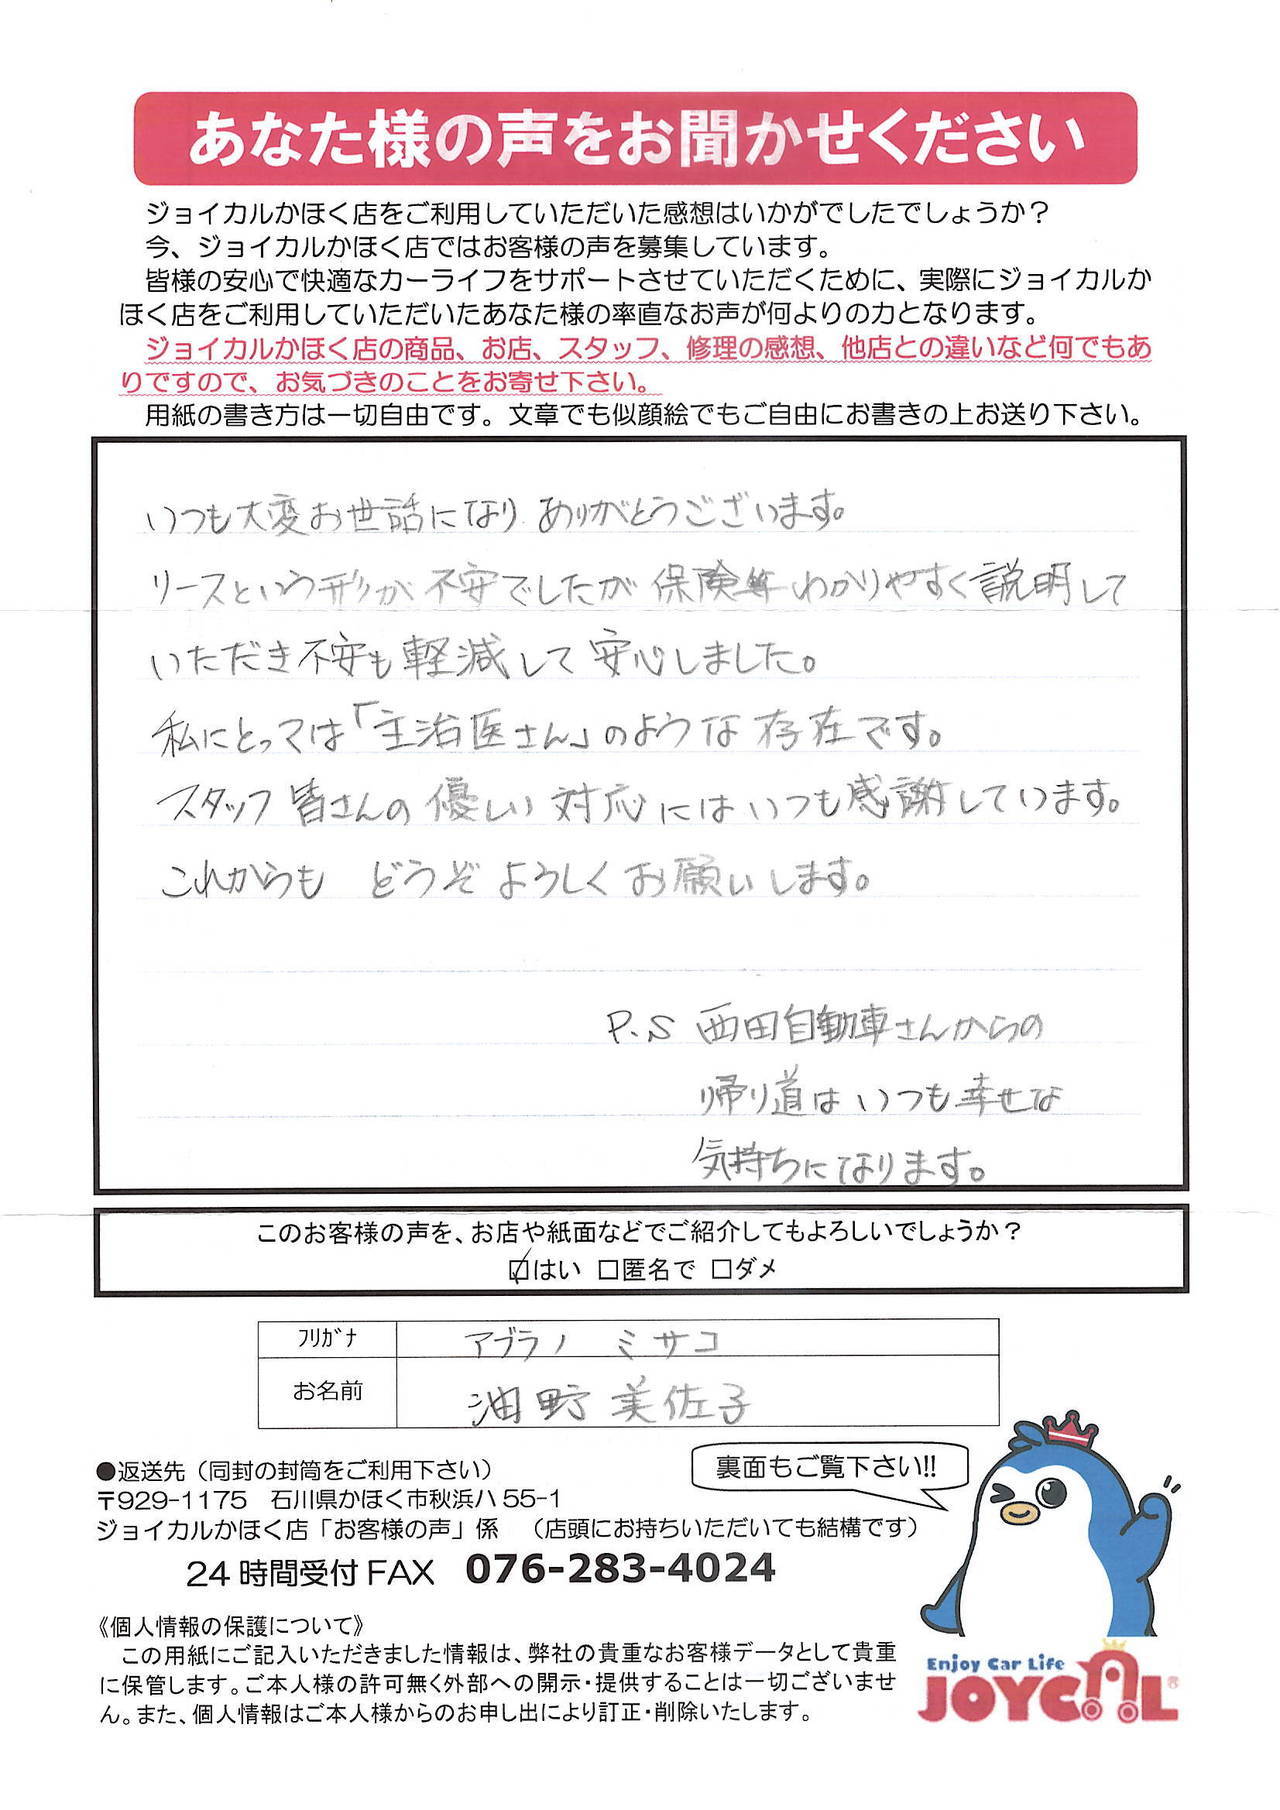 あなた様の声をお聞かせください
ジョイカルかほく店をご利用していただいた感想はいかがでしたでしょうか？
今、ジョイカルかほく店ではお客様の声を募集しています。
皆様の安心で快適なカーライフをサポートさせていただくために、実際にジョイカルか
ほく店をご利用していただいたあなた様の率直なお声が何よりの力となります。
ジョイカルかほく店の商品、お店、スタッフ、修理の感想、他店との違いなど何でもあ
りですので、お気づきのことをお寄せ下さい。
用紙の書き方は一切自由です。文章でも似顔絵でもご自由にお書きの上お送り下さい。
いつも大変お世話になり ありがとうございます。
リースという形が 不安でしたが 保険等わかりやすく説明して
いただき不安も軽減して安心しました。
私にとっては「主治医さん」のような存在です。
スタッフ皆さんの優しい対応にはいつも感謝しています。
これからも どうぞよろしくお願いします。
P.S 西田自動車さんからの
帰り道はいつも幸せな
気持ちになります。
このお客様の声を、お店や紙面などでご紹介してもよろしいでしょうか？
☑はい □匿名で □ダメ
ﾌﾘｶﾞﾅ アブラノ ミサコ
お名前 油野 美佐子
裏面もご覧下さい!!
●返送先（同封の封筒をご利用下さい）
〒929-1175 石川県かほく市秋浜ハ55-1
ジョイカルかほく店「お客様の声」係 （店頭にお持ちいただいても結構です）
24時間受付FAX 076-283-4024
《個人情報の保護について》
この用紙にご記入いただきました情報は、弊社の貴重なお客様データとして貴重
に保管します。ご本人様の許可無く外部への開示・提供することは一切ございませ
ん。また、個人情報はご本人様からのお申し出により訂正・削除いたします。
Enjoy Car Life
JOYCAL®